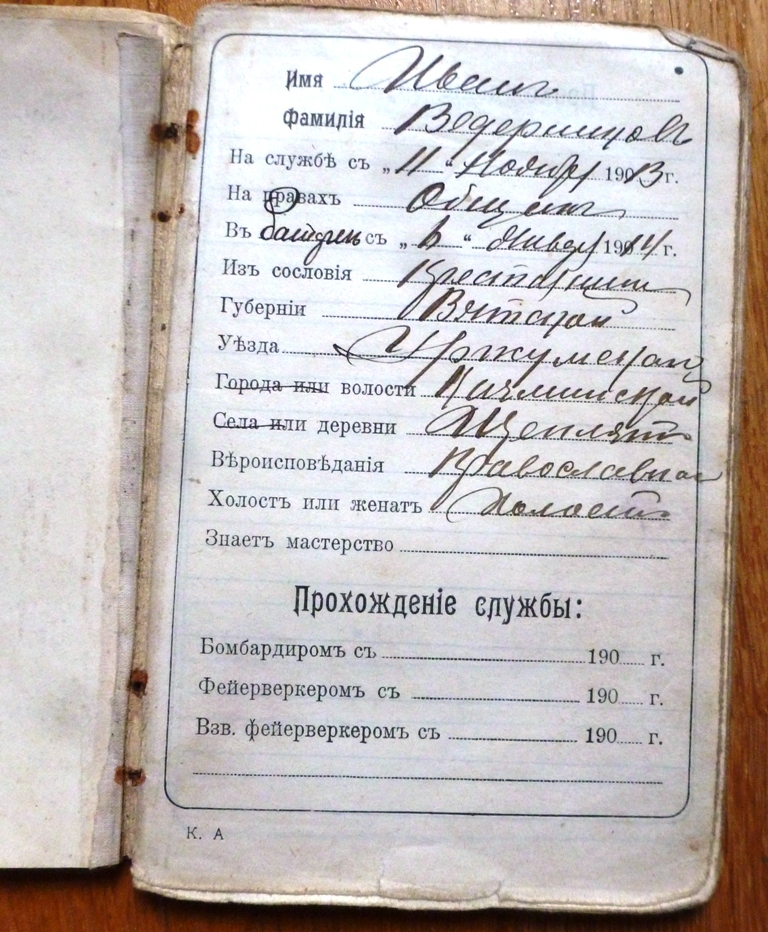 Имя Иванъ
Фамилія Ведерниковъ
На службѣ съ „11 Ноября 1913 г.
На правахъ Общихъ
Въ батарее съ „6“ Январ 1914 г.
Изъ сословія Крестьянинъ
Губерніи Вятской
Уѣзда Уржумской
Города или волости Кичминской
Села или деревни Щеплят
Вѣроисповѣданія Православнаго
Холостъ или женатъ Холостъ
Знаетъ мастерство
Прохожденіе службы:
Бомбардиромъ съ 190 г.
Фейерверкеромъ съ 190 г.
Взв. фейерверкеромъ съ 190 г.
К. А